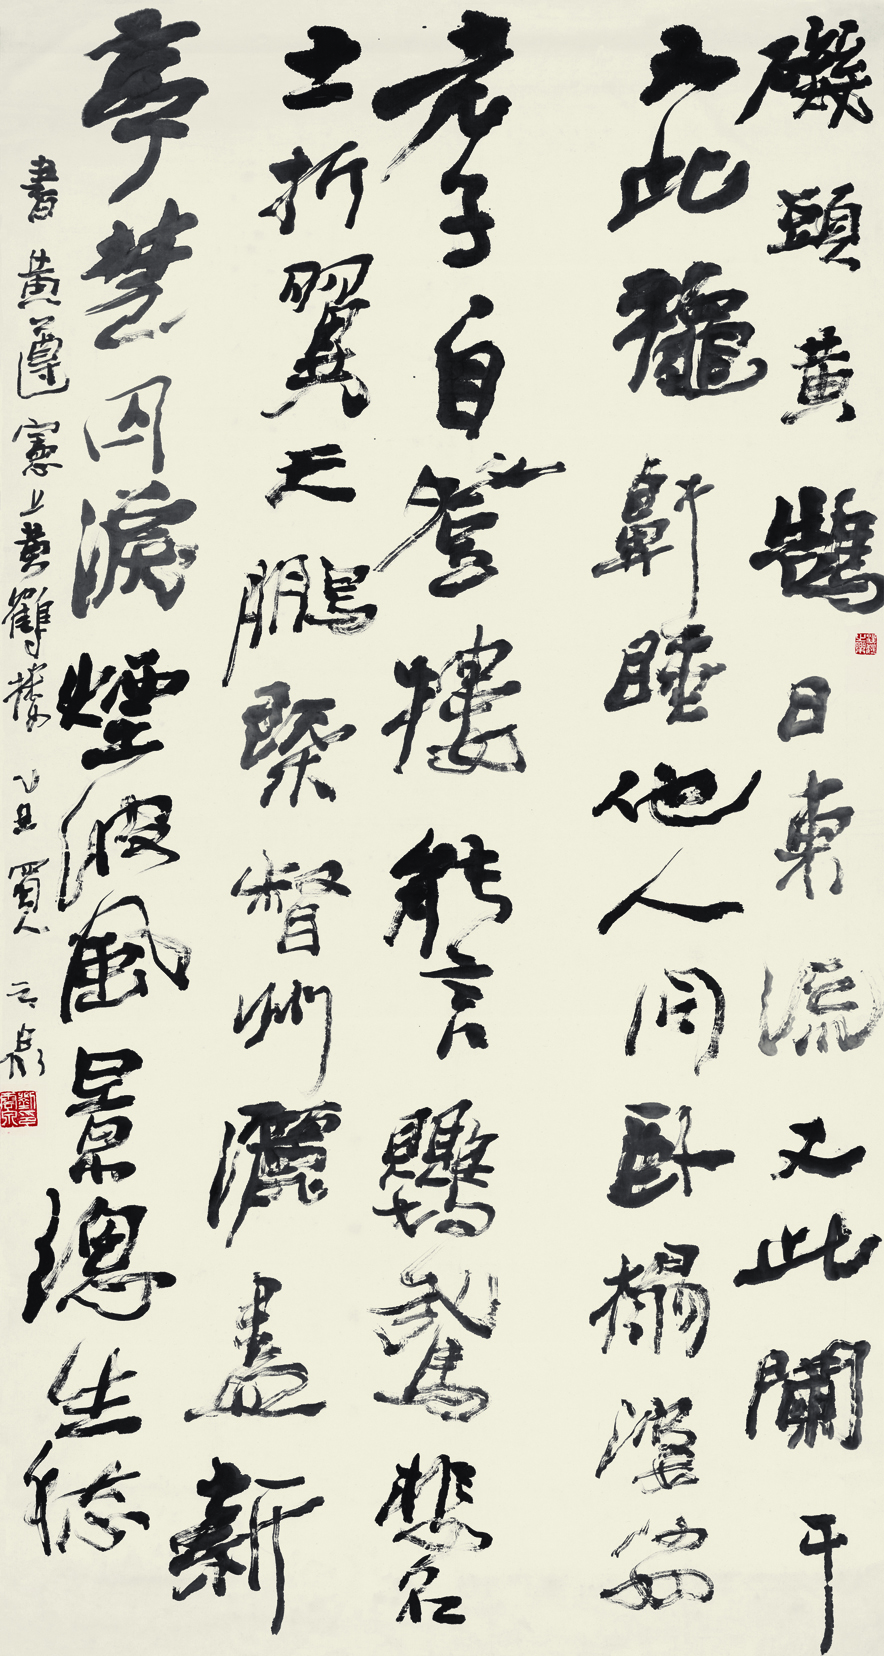 磯頭黄鵠日東流又此闌干
又此龝鼾睡他人同卧榻婆娑
老子自登樓能言鸚鵡悲名
士折翼天鵬槩督州灑盡新
亭楚囚淚煙波風景總生愁
書黄遵憲上黄鶴樓乙丑夏